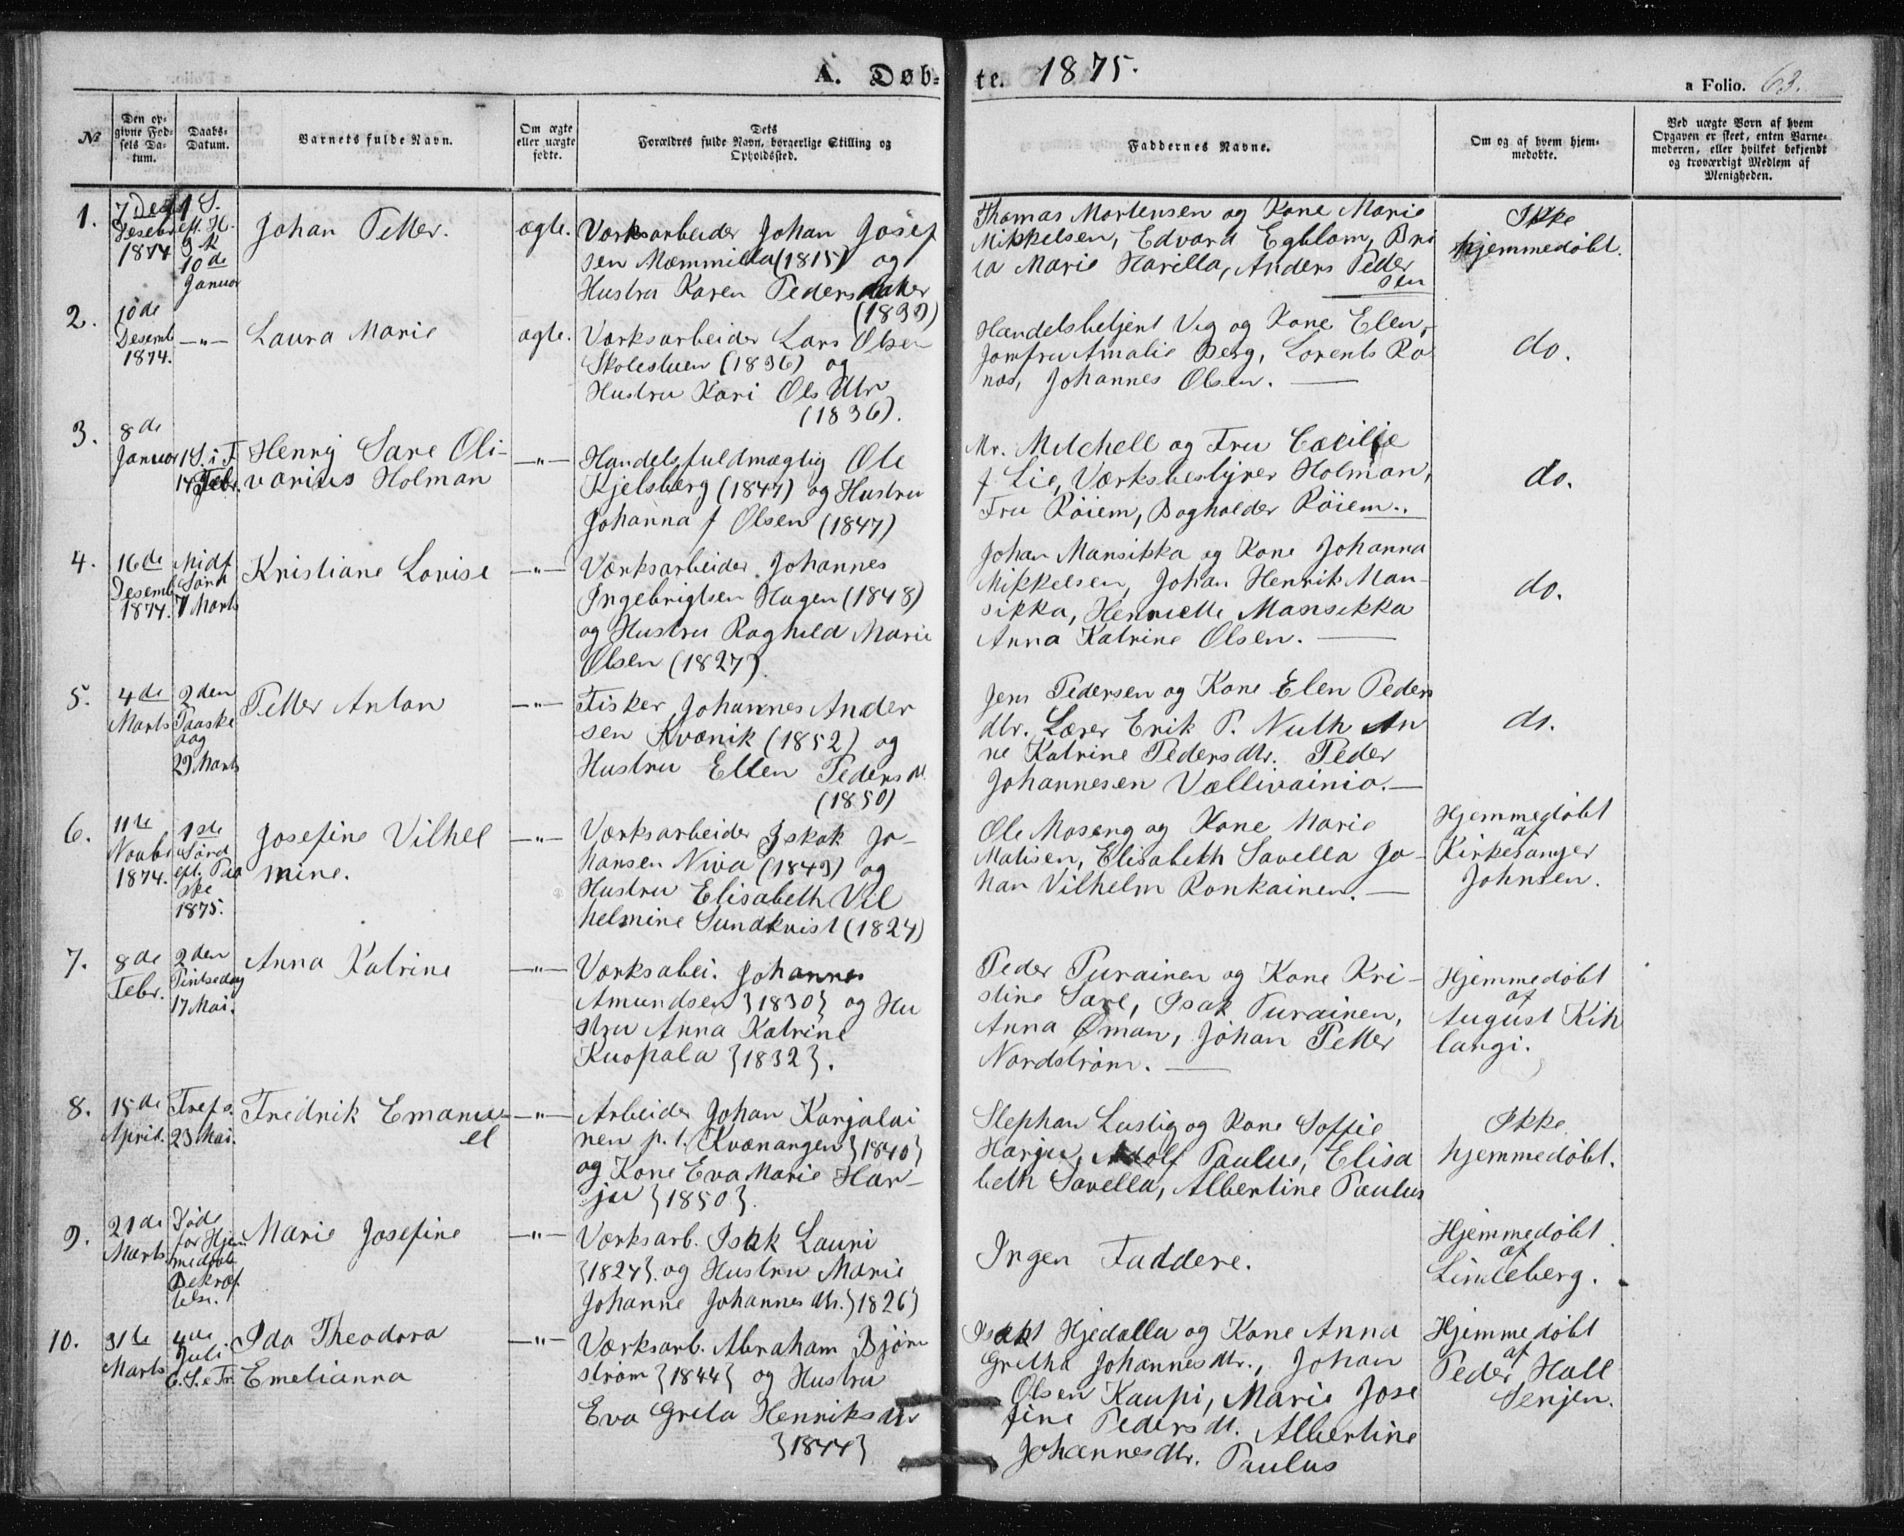 A. Døb-te. 1875.
a Folio. 63.
No
Den opgivne Fodsels Datum.
Daabs-Datum.
Barnets fulde Navn.
Om ægte eller uægte fødte.
Dets Forældres fulde Navn, borgerlige Stilling og Opholdssted.
Faddernes Navne.
Om og af hvem hjemmedøbte.
Ved uægte Børn af hvem Opgaven er skeet, enten Barnemoderen, eller hvilket bekjendt og troværdigt Medlem af Menigheden.
1.
Desebr
1874
1 S.
eft. H.
3 K
10de
Januar
Johan Petter.
ægte.
Værksarbeider Johan Josef
sen Mæmmilla (1815) og
Hustru Karen Pedersdatter
Thomas Mortensen og Kone Marie
Mikkelsen, Edvard Egblom, Bri
ta Marie Harilla, Anders Peder
sen
Ikke
hjemmedøbt.
2.
10de
Desemb
1874.
—"—
Laura Marie
ægte.
Værksarbeider Lars Olsen
Skolestuen (1836) og
Hustru Kari Ols Dtr
(1836).
Handelsbetjent Vig og Kone Elen,
Jomfru Amalie Berg, Lorents Ro
nas, Johannes Olsen. —
do.
3.
8de
Januar
1 S. i F
14 Febr.
Henrij Sare Oli-
varius Holman
—"—
Handelsfuldmægtig Ole
Kjelsberg (1847) og Hustru
Johanna f Olsen (1847)
Mr. Mitchell og Fru Cæcilie
f Lie, Værksbestyrer Holman,
Fru Röiem, Bogholder Röiem.
do.
4.
16de
Desemb
1874.
Midf
Sønd
7 Marts
Kristiane Lovise
—"—
Værksarbeider Johannes
Ingebrigtsen Hagen (1848)
og Hustru Raghild Marie
Olsen (1827)
Johan Mansikka og Kone Johanna
Mikkelsen, Johan Henrik Man-
sikka, Henriette Mansikka
Anna Katrine Olsen. —
do.
5.
4de
Marts
2den
Paaske
dag
29 Marts
Petter Anton
—"—
Fisker Johannes Ander
sen Kvænik (1852) og
Hustru Ellen Pedersdt
(1850)
Jens Pedersen og Kone Elen Peders
dtr. Lærer Erik P. Nuth An
ne Katrine Pedersdtr. Peder
Johannesen Vællivainio. —
do.
6.
11te
Novbr
1874.
1ste
Sønd
eft. Paa
ske
1875.
Josefine Vilhel
mine.
—"—
Værksarbeider Iskak Jo-
hansen Niva (1849) og
Hustru Elisabeth Vil
helmine Sundkvist (1824)
Ole Moseng og Kone Marie
Matisen, Elisabeth Savella Jo-
han Vilhelm Ronkainen. —
Hjemmedøbt
af
Kirkesanger
Johnsen.
7.
8de
Febr.
2den
Pintsedag
17 Mai.
Anna Katrine
—"—
Værksabei. Johannes
Amundsen }1830} og Hu
stru Anna Katrine
Kuopala }1832}.
Peder Purainen og Kone Kri-
stine Sare, Isak Purainen,
Anna Öman, Johan Petter
Nordstrøm. —
Hjemmedøbt
af
August Kih
langi.
8.
15de
April.
Tref s.
23 Mai.
Fredrik Emanu-
el
—"—
Arbeider Johan Karjalai
nen p. t. Kvænangen }1840}
og Kone Eva Marie Har-
ju }1850}.
Stephan Lustig og Kone Soffie
Harju, Adolf Paulus, Elisa
beth Savella, Albertine Paulus
Ikke
hjemmedøbt.
9.
21de
Marts
for Hjem
medøbt
Bekræf
telse.
Marie Josefine
—"—
Værksarb. Isak Lauri
}1824}. og Hustru Marie
Johanne Johannesdtr. }1826}
Ingen Faddere.
Hjemmedøbt
af
Lindeberg.
10.
31te
Marts
4de
Juli
6. S. e Tr.
Ida Theodora
Emelianna
—"—
Værksarb. Abraham Bjørn
strøm }1844} og Hustru
Eva Greta Henriksdtr
}1844}
Isakt Hjedalla og Kone Anna
Gretha Johannesdtr., Johan
Olsen Kaupi, Marie Jose
fine Pedersdt. Albertine
Johannesdtr. Paulus
Hjemmedøbt
af
Peder Hall
Senjen.